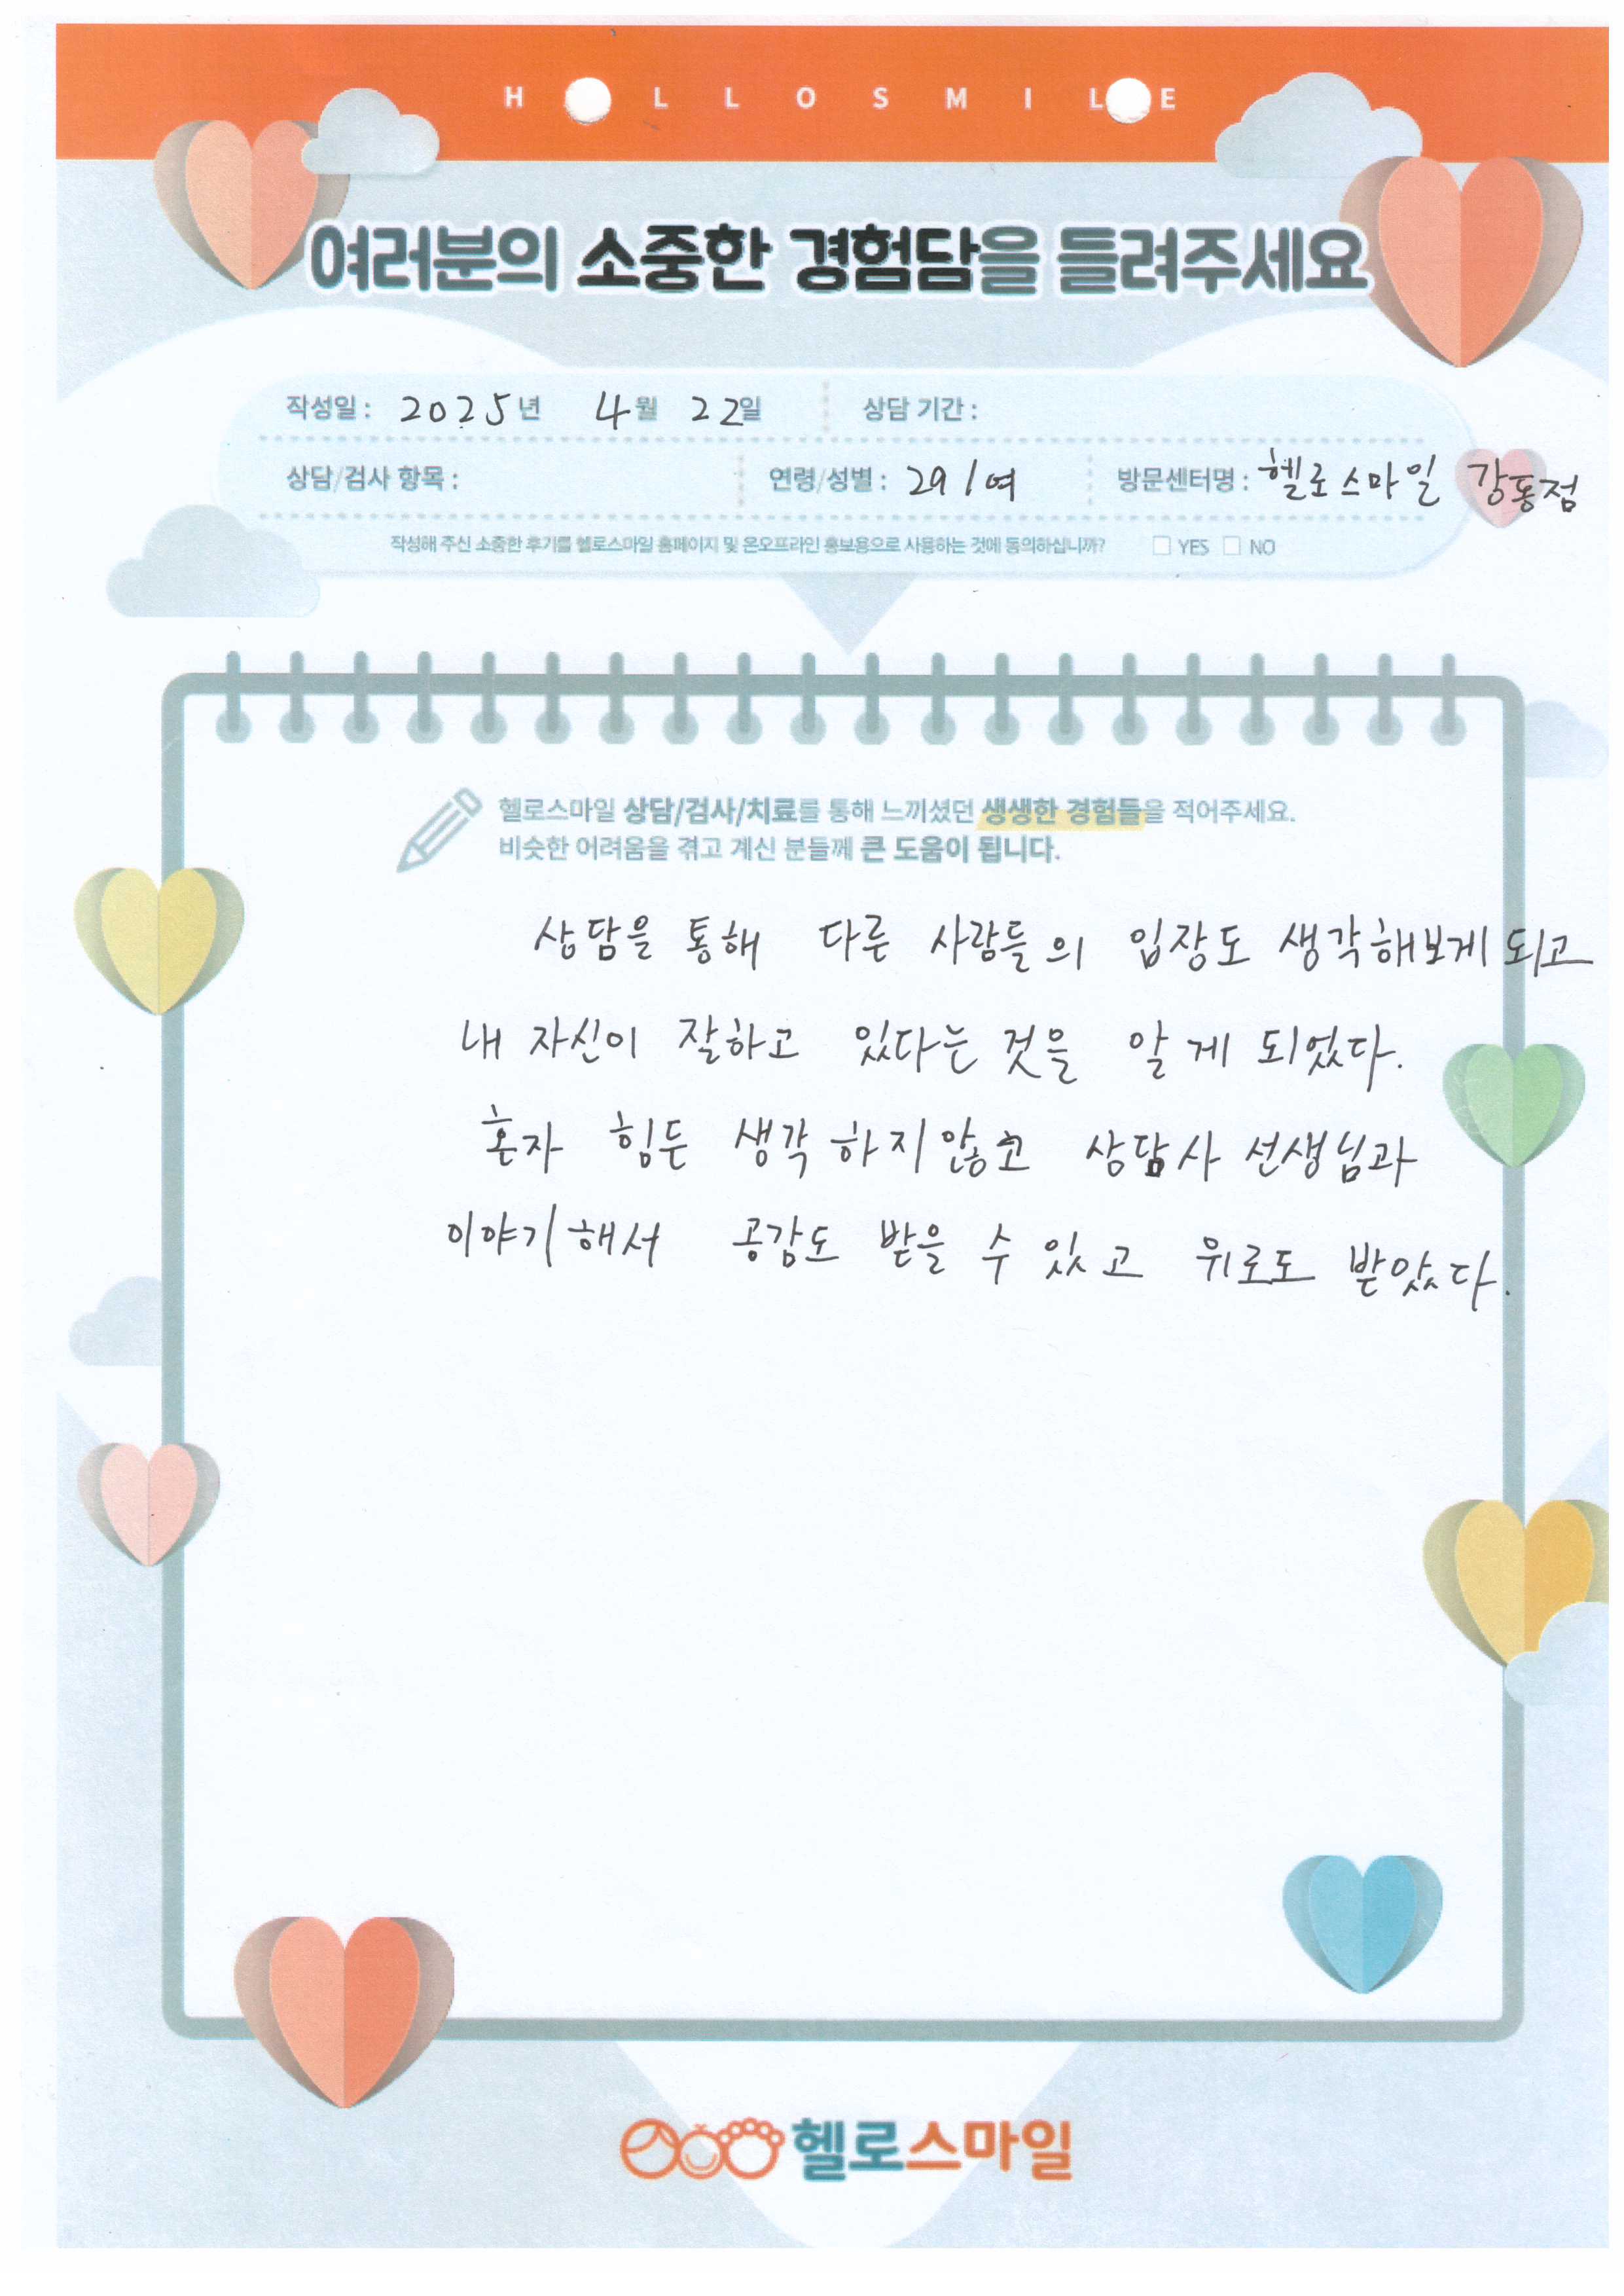 H LLOSMIL E
여러분의 소중한 경험담을 들려주세요
작성일 : 2025년 4월 22일 상담 기간 :
상담/검사 항목 : 연령/성별 : 29/여 방문센터명 : 헬로스마일 강동점
작성해 주신 소중한 후기를 헬로스마일 홈페이지 및 온오프라인 홍보용으로 사용하는 것에 동의하십니까? □ YES □ NO
헬로스마일 상담/검사/치료를 통해 느끼셨던 생생한 경험들을 적어주세요.
비슷한 어려움을 겪고 계신 분들께 큰 도움이 됩니다.
상담을 통해 다른 사람들의 입장도 생각해보게 되고
내 자신이 잘하고 있다는 것을 알게 되었다.
혼자 힘든 생각하지않고 상담사 선생님과
이야기해서 공감도 받을 수 있고 위로도 받았다.
헬로스마일